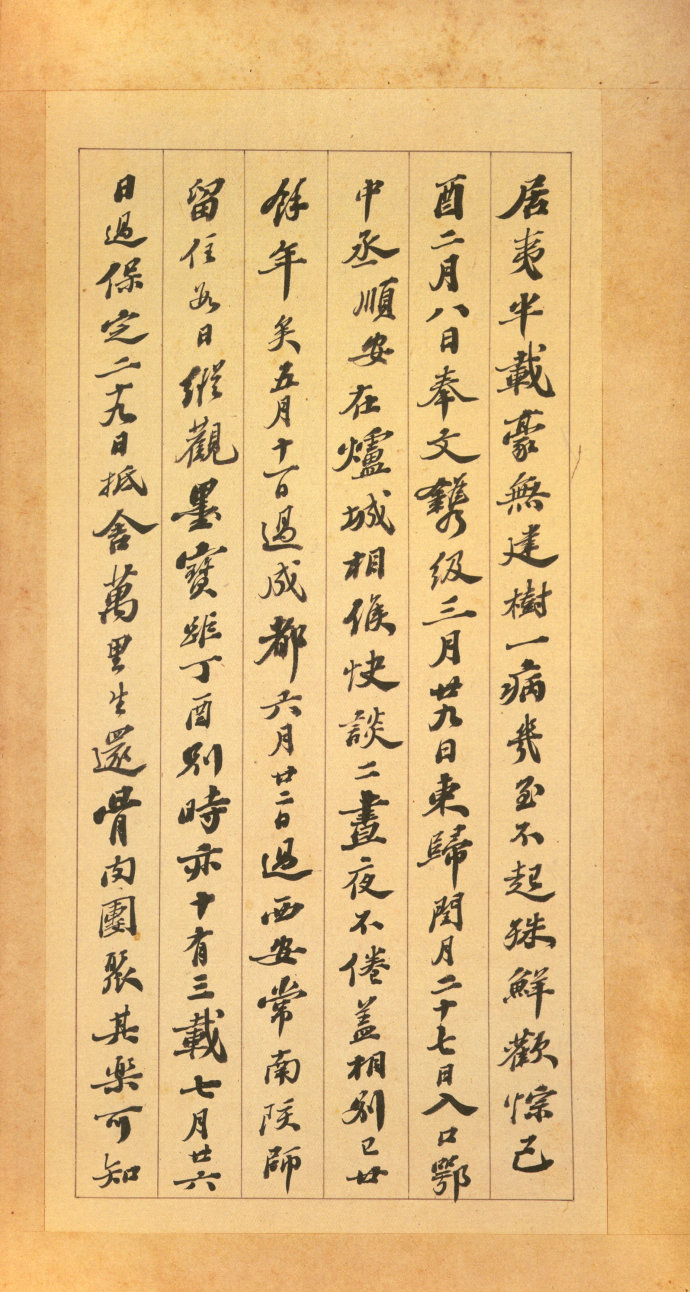 居夷半載豪無建樹一病幾至不起殊鮮歡悰己
酉二月八日奉文鐫級三月廿九日東歸閏月二十七日入口鄂
中丞順安在爐城相候快談二晝夜不倦蓋相別已廿
餘年矣五月十一日過成都六月廿二日過西安常南陔師
留住數日縱觀墨寶距丁酉別時亦十有三載七月廿六
日過保定二十九日抵舍萬里生還骨肉團聚其樂可知